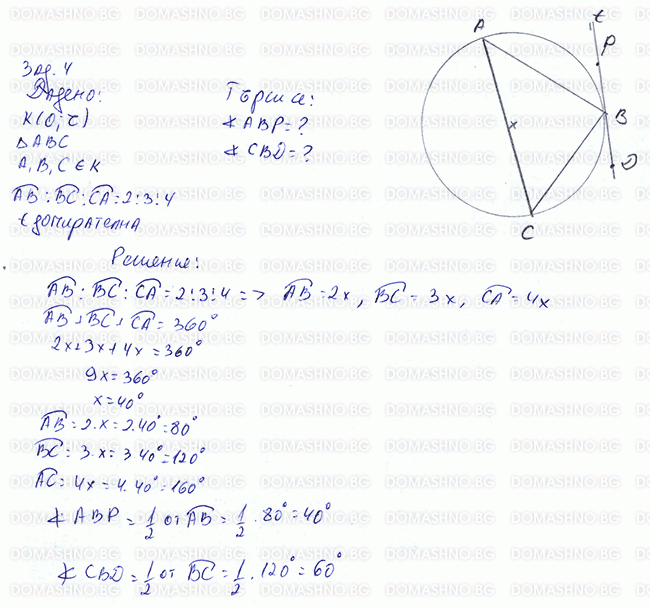 Зад. 4
Дадено:
K(O; r)
ΔABC
A, B, C ∈ K
AB : BC : CA = 2 : 3 : 4
t допирателна
Търси се:
∢ ABP = ?
∢ CBD = ?
A
t
P
B
D
x
C
Решение:
AB : BC : CA = 2 : 3 : 4 => AB = 2x, BC = 3x, CA = 4x
AB + BC + CA = 360°
2x + 3x + 4x = 360°
9x = 360°
x = 40°
AB = 2.x = 2.40° = 80°
BC = 3.x = 3.40° = 120°
AC = 4x = 4.40° = 160°
∢ ABP = 1/2 от AB = 1/2 . 80° = 40°
∢ CBD = 1/2 от BC = 1/2 . 120° = 60°
DOMASHNO.BG